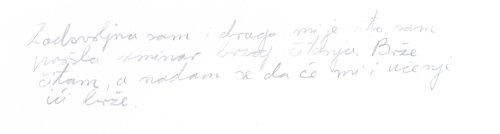 Zadovoljna sam i drago mi je što sam
prošla seminar brzog čitanja. Brže
čitam, a nadam se da će mi i učenje
ići brže.